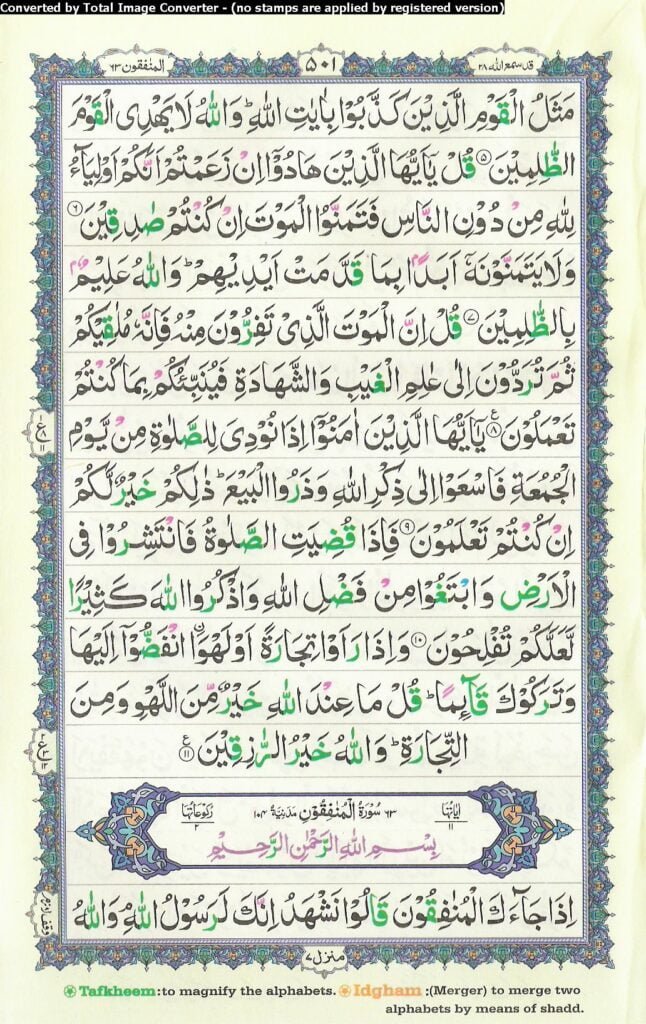 Converted by Total Image Converter - (no stamps are applied by registered version)
قد سمع الله ٢٨
٥٠١
المنٰفقون ٦٣
مَثَلُ الْقَوْمِ الَّذِيْنَ كَذَّبُوْا بِاٰيٰتِ اللّٰهِ ؕ وَاللّٰهُ لَا يَهْدِى الْقَوْمَ
الظّٰلِمِيْنَ ۵ قُلْ يٰۤاَيُّهَا الَّذِيْنَ هَادُوْۤا اِنْ زَعَمْتُمْ اَنَّكُمْ اَوْلِيَآءُ
لِلّٰهِ مِنْ دُوْنِ النَّاسِ فَتَمَنَّوُا الْمَوْتَ اِنْ كُنْتُمْ صٰدِقِيْنَ ۶
وَلَا يَتَمَنَّوْنَهٗۤ اَبَدًۢا بِمَا قَدَّمَتْ اَيْدِيْهِمْ ؕ وَاللّٰهُ عَلِيْمٌۢ
بِالظّٰلِمِيْنَ ۷ قُلْ اِنَّ الْمَوْتَ الَّذِىْ تَفِرُّوْنَ مِنْهُ فَاِنَّهٗ مُلٰقِيْكُمْ
ثُمَّ تُرَدُّوْنَ اِلٰى عٰلِمِ الْغَيْبِ وَالشَّهَادَةِ فَيُنَبِّئُكُمْ بِمَا كُنْتُمْ
تَعْمَلُوْنَ ۸ ع يٰۤاَيُّهَا الَّذِيْنَ اٰمَنُوْۤا اِذَا نُوْدِىَ لِلصَّلٰوةِ مِنْ يَّوْمِ
الْجُمُعَةِ فَاسْعَوْا اِلٰى ذِكْرِ اللّٰهِ وَذَرُوا الْبَيْعَ ؕ ذٰلِكُمْ خَيْرٌ لَّكُمْ
اِنْ كُنْتُمْ تَعْلَمُوْنَ ۹ فَاِذَا قُضِيَتِ الصَّلٰوةُ فَانْتَشِرُوْا فِى
الْاَرْضِ وَابْتَغُوْا مِنْ فَضْلِ اللّٰهِ وَاذْكُرُوا اللّٰهَ كَثِيْرًا
لَّعَلَّكُمْ تُفْلِحُوْنَ ۱۰ وَاِذَا رَاَوْا تِجَارَةً اَوْ لَهْوَا۟ انْفَضُّوْۤا اِلَيْهَا
وَتَرَكُوْكَ قَآئِمًا ؕ قُلْ مَا عِنْدَ اللّٰهِ خَيْرٌ مِّنَ اللَّهْوِ وَمِنَ
التِّجَارَةِ ؕ وَاللّٰهُ خَيْرُ الرّٰزِقِيْنَ ۱۱ ع
اٰيَاتُهَا ١١
٦٣ سُوْرَةُ الْمُنٰفِقُوْنَ مَدَنِيَّةٌ ١٠٤
رُكُوْعَاتُهَا ٢
بِسْمِ اللّٰهِ الرَّحْمٰنِ الرَّحِيْمِ
اِذَا جَآءَكَ الْمُنٰفِقُوْنَ قَالُوْا نَشْهَدُ اِنَّكَ لَرَسُوْلُ اللّٰهِ ۘ وَاللّٰهُ
منزل ٧
Tafkheem :to magnify the alphabets. Idgham :(Merger) to merge two
alphabets by means of shadd.